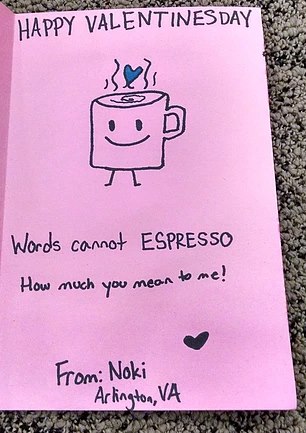 HAPPY VALENTINESDAY
Words cannot ESPRESSO
How much you mean to me!
From: Noki
Arlington, VA